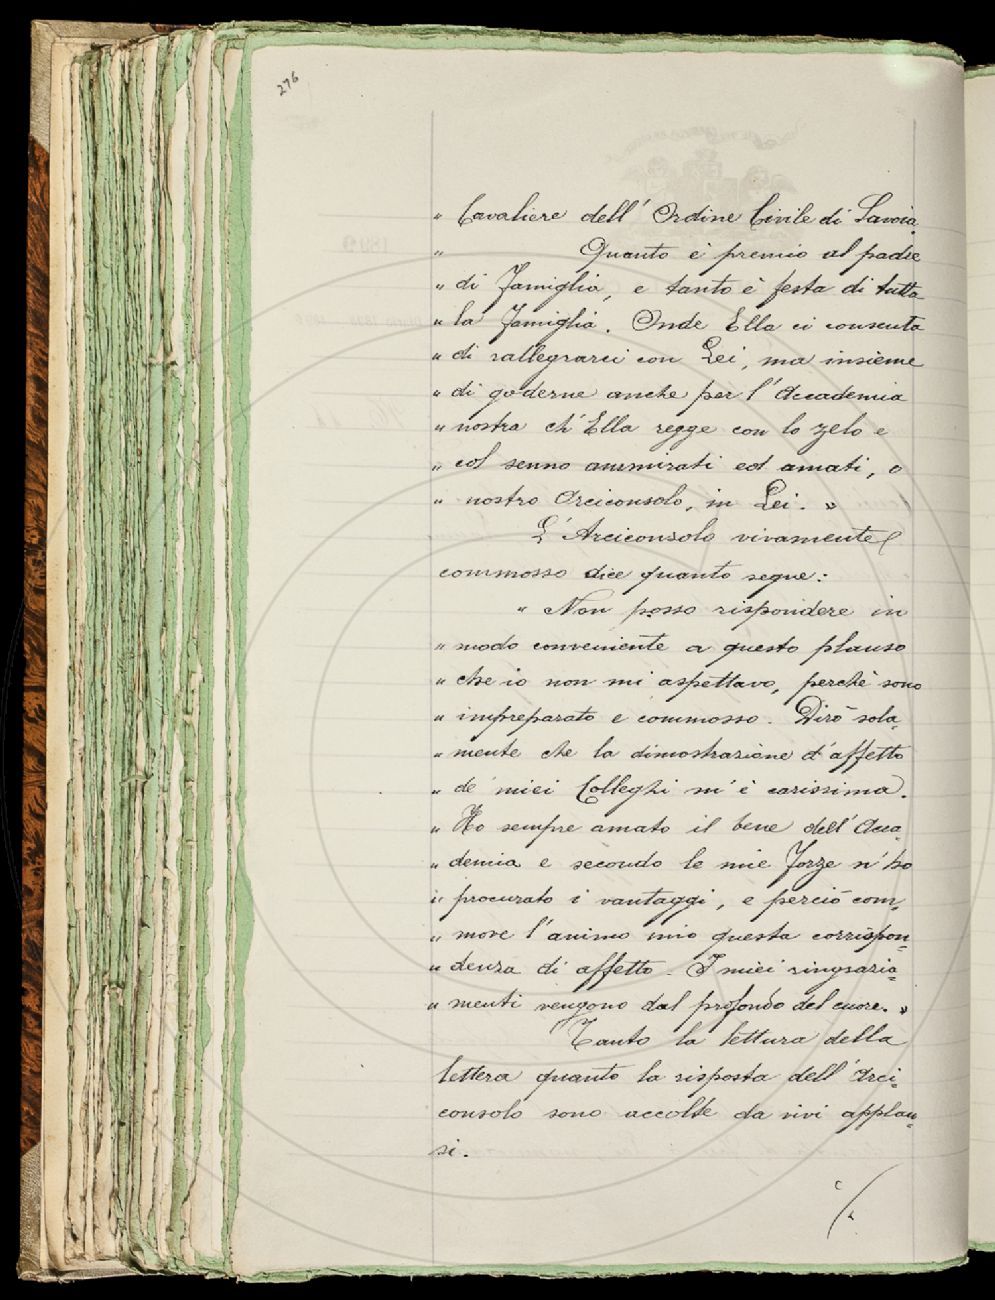 276
„ Cavaliere dell' Ordine Civile di Savoia.
„ Quanto è premio al padre
„ di Famiglia, e tanto è festa di tutta
„ la Famiglia. Onde Ella ci consenta
„ di rallegrarci con Lei, ma insieme
„ di goderne anche per l'Accademia
„ nostra ch'Ella regge con lo zelo e
„ col senno ammirati ed amati, o
„ nostro Arciconsolo, in Lei. „
L'Arciconsolo vivamente
commosso dice quanto segue:
„ Non posso rispondere in
„ modo conveniente a questo plauso
„ che io non mi aspettavo, perchè sono
„ impreparato e commosso. Dirò sola=
„ mente che la dimostrazione d'affetto
„ de' miei Colleghi m'è carissima.
„ Ho sempre amato il bene dell'Acca=
„ demia e secondo le mie forze n'ho
„ procurato i vantaggi, e perciò com=
„ move l'animo mio questa corrispon=
„ denza di affetto. I miei ringrazia=
„ menti vengono dal profondo del cuore. „
Tanto la lettura della
lettera quanto la risposta dell'Arci=
consolo sono accolte da vivi applau=
si.
./.